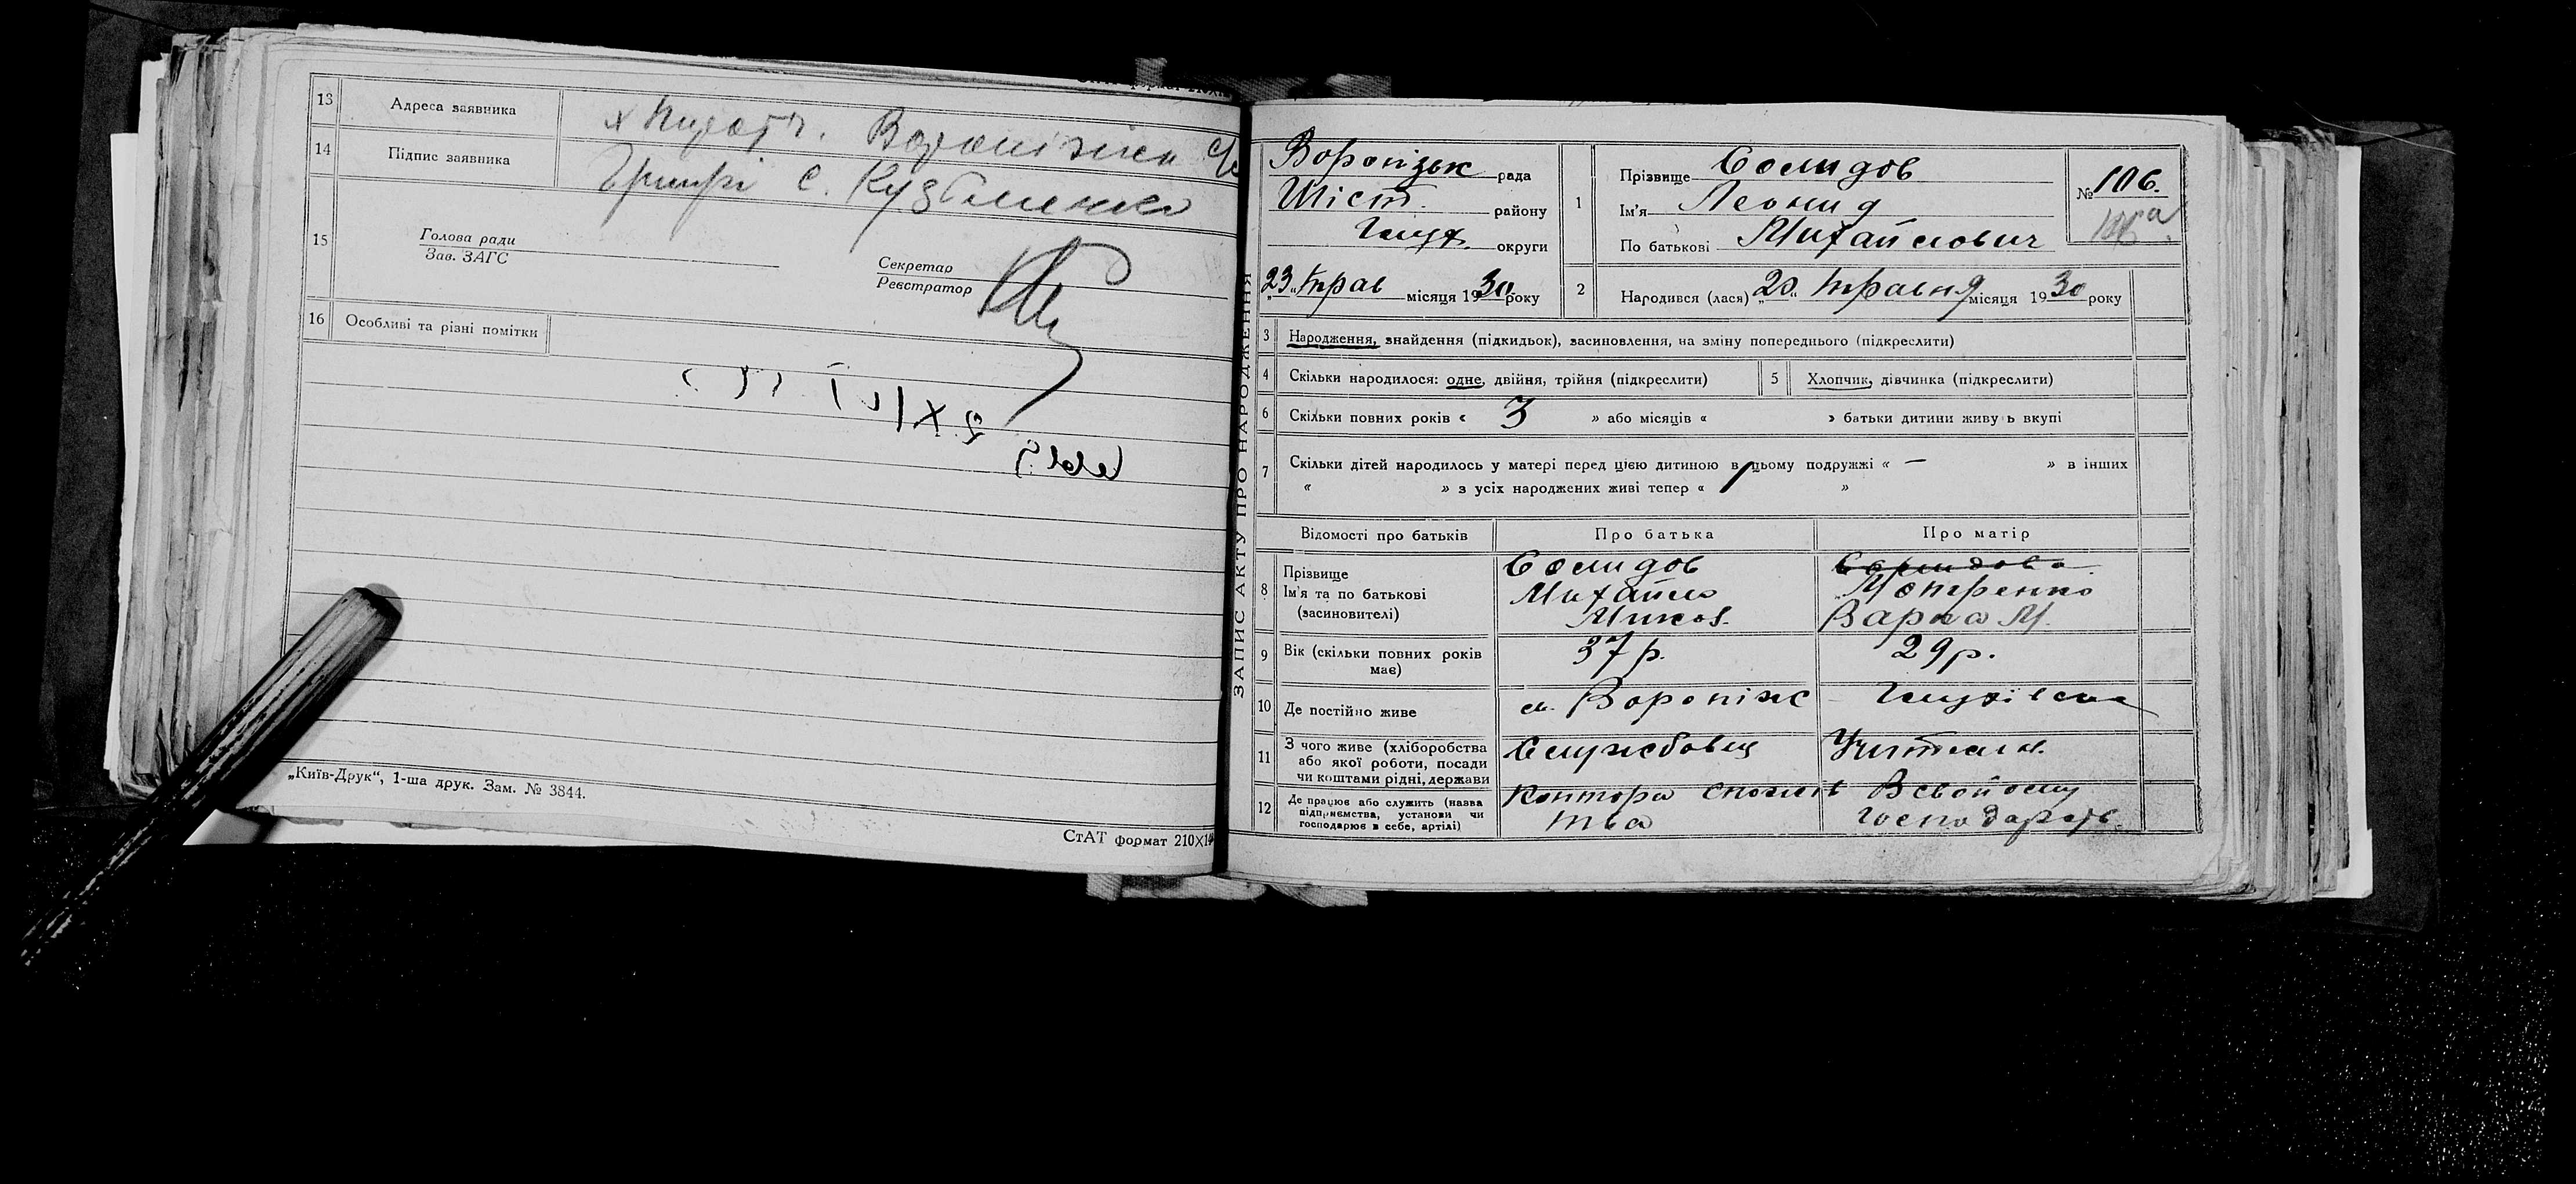 13 Адреса заявника
14 Підпис заявника
С. Кузьменко
15 Голова ради
Зав. ЗАГС
Секретар
Реєстратор
16 Особливі та різні помітки
„Київ-Друк“, 1-ша друк. Зам. № 3844.
СтАТ формат 210×14
ЗАПИС АКТУ ПРО НАРОДЖЕННЯ
Вороnізьк рада
Міст. району
Глух. округи
„23“ трав місяця 1930 року
1 Прізвище Солидов
Ім'я Леонид
По батькові Михайлович
№ 106.
106а
2 Народився (лася) „20“ травня місяця 1930 року
3 Народження, знайдення (підкидьок), засиновлення, на зміну попереднього (підкреслити)
4 Скільки народилося: одне, двійня, трійня (підкреслити)
5 Хлопчик, дівчинка (підкреслити)
6 Скільки повних років « 3 » або місяців « » батьки дитини живуь вкупі
7 Скільки дітей народилось у матері перед цією дитиною в цьому подружжі « — » в інших
« » з усіх народжених живі тепер « »
Відомості про батьків Про батька Про матір
8 Прізвище
Ім'я та по батькові
(засновителі)
Солидов
Михайло
Микол.
Варка М.
9 Вік (скільки повних років має) 37 р. 29 р.
10 Де постійно живе м. Вороніж Глухівськ
11 З чого живе (хліборобства
або якої роботи, посади
чи коштами рідні, держави
Службовец Учителн.
12 Де працює або служить (назва
підприємства, установи чи
господарює в себе, артілі)
Контора спожив
тва
В свойому
господарств.